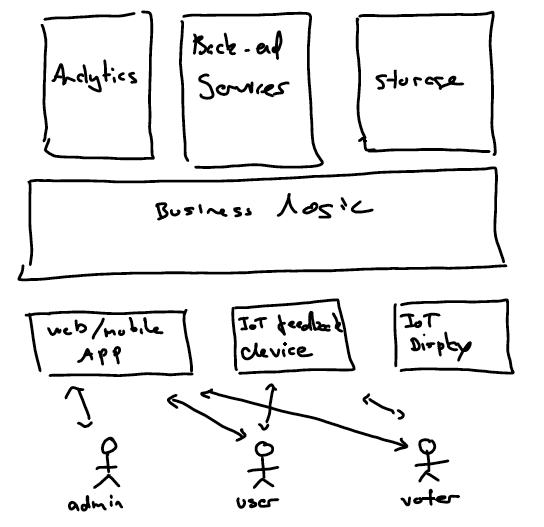 Analytics
Back-end
Services
Storage
Business Logic
web/mobile
APP
IoT feedback
device
IoT
Display
admin
user
voter